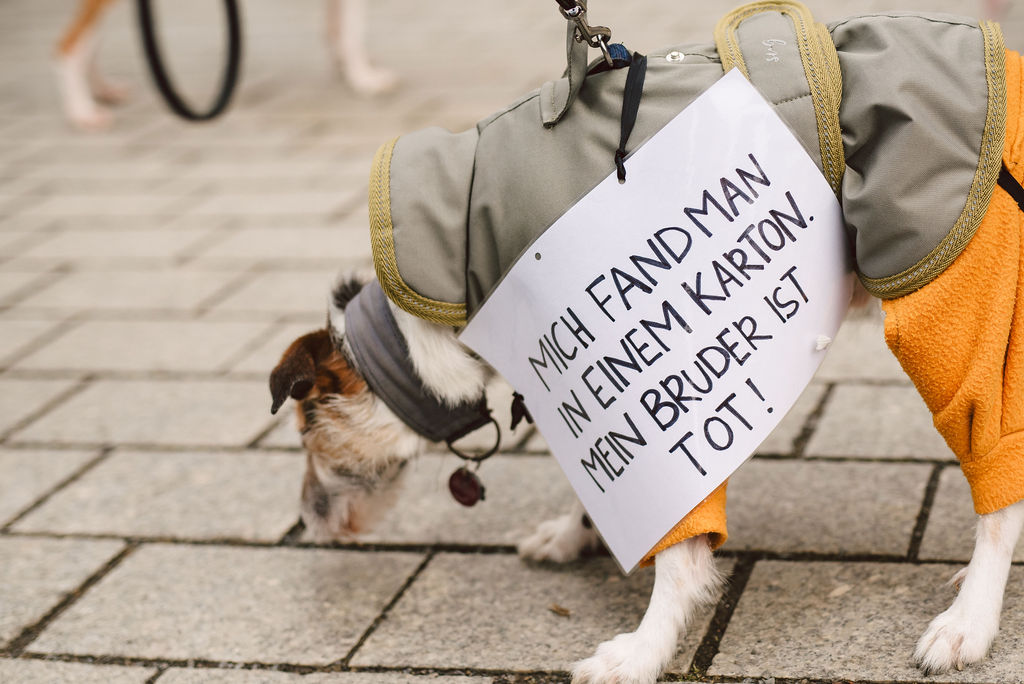 MICH FAND MAN
IN EINEM KARTON.
MEIN BRUDER IST
TOT!